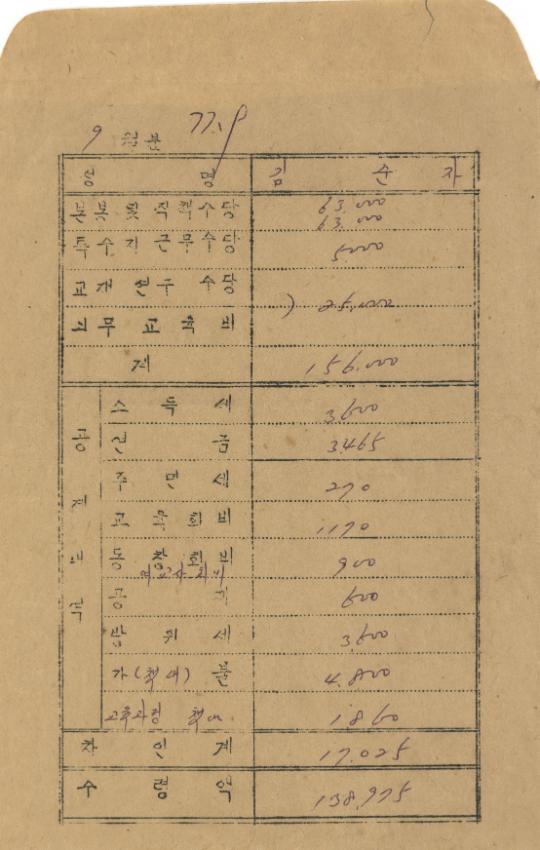 9 월분 77. 9
성 명 김 순 자
본봉 및 직책수당 63.000
63.000
특수지 근무수당 5.000
교재 연구 수당
) 25.000
의무 교육비
계 156.000
공제내역
소득세 3600
연금 3465
주민세 270
교육회비 1170
동창회비 900
여교사회비
600
방위세 3.600
가(책대)불 4.800
교육과정 책대 1860
차인계 17.025
수령액 138,975